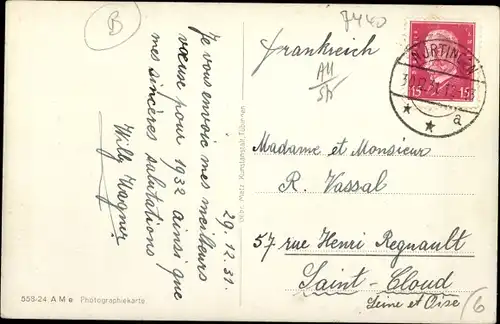 B
7440
Frankreich
All
St
NÜRTINGEN
15 15
a
29.12.31.
Je vous envoie mes meilleurs
vœux pour 1932 ainsi que
mes sincères salutations
Willy Wagner
Gebr. Metz Kunstanstalt, Tübingen
Madame et Monsieur
R. Vassal
57 rue Henri Regnault
Saint-Cloud
Seine et Oise
558-24 A M e Photographiekarte.
6